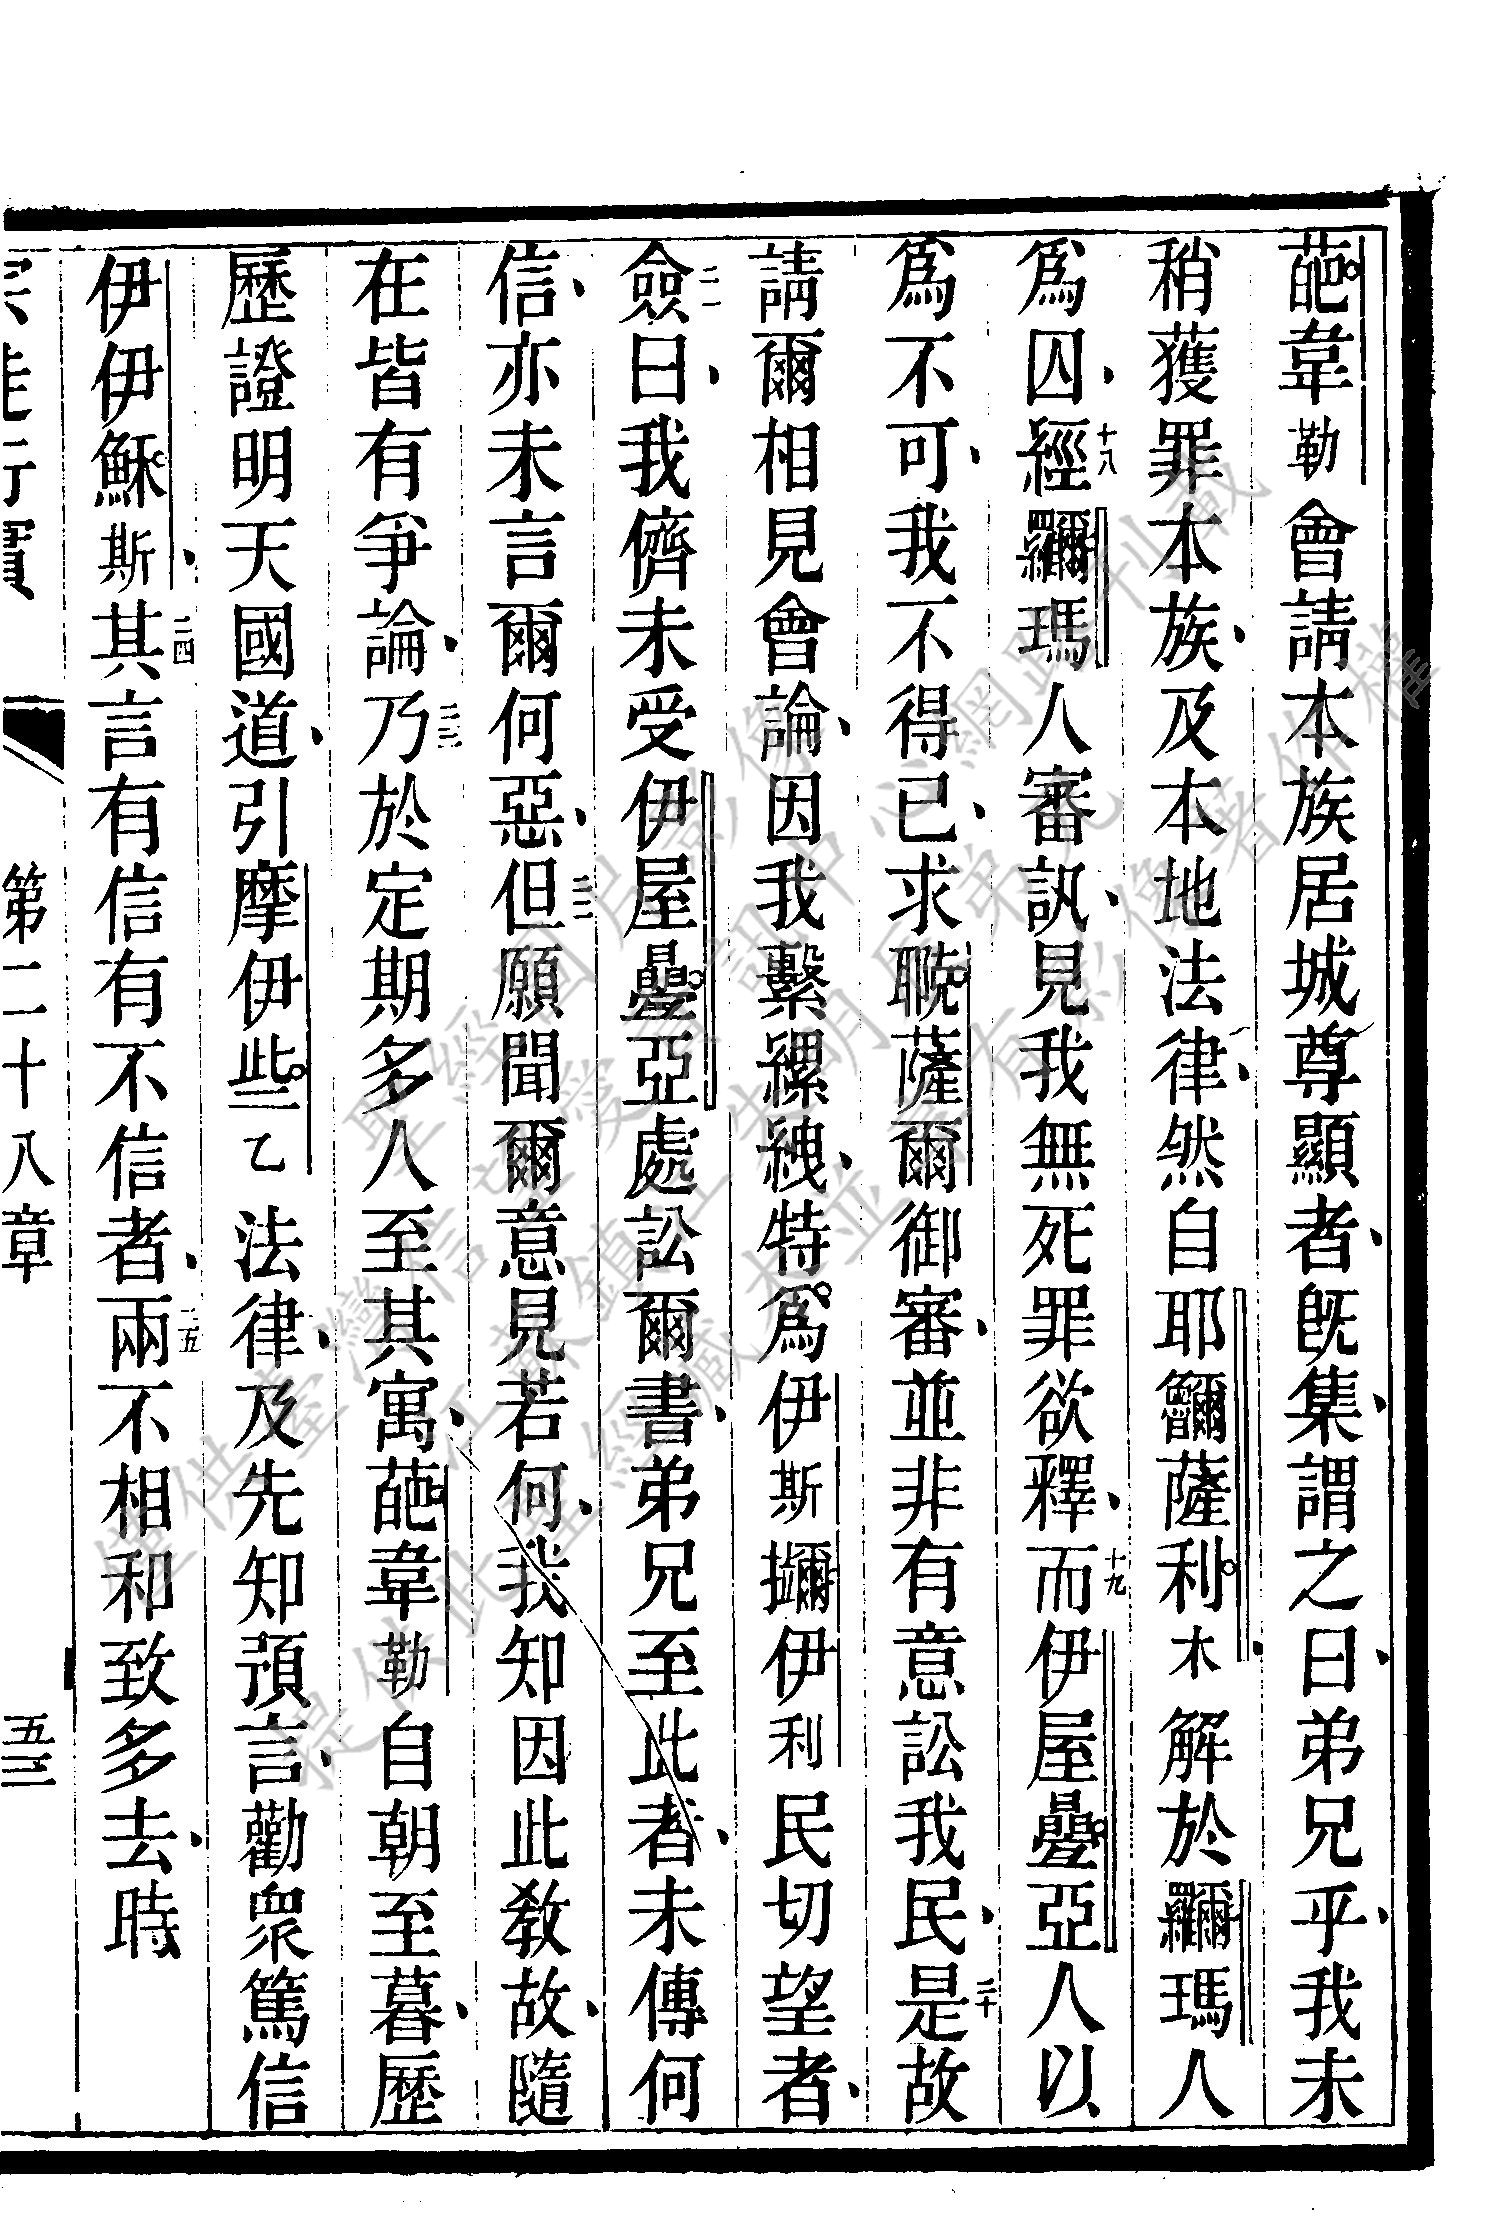 葩韋勒會請本族居城尊顯者、旣集、謂之曰、弟兄乎、我未
稍獲罪本族、及本地法律、然自耶薩利木、解於瑪人
爲囚、十八經瑪人審訊、見我無死罪欲釋、十九而伊屋疊亞人以
爲不可、我不得已、求薩爾御審、並非有意訟我民、二十是故
請爾相見會論、因我繫縲絏、特爲伊斯伊利民切望者、
二一僉曰、我儕未受伊屋疊亞處訟爾書、弟兄至此者、未傳何
信、亦未言爾何惡、二二但願聞爾意見若何、我知因此敎故、隨
在皆有爭論、二三乃於定期多人至其寓、葩韋勒自朝至暮、歷
歷證明天國道、引摩伊些乙法律、及先知預言、勸衆篤信
伊伊穌斯、二四其言有信有不信者、二五兩不相和致多去、時
宗徒行實 第二十八章 五三